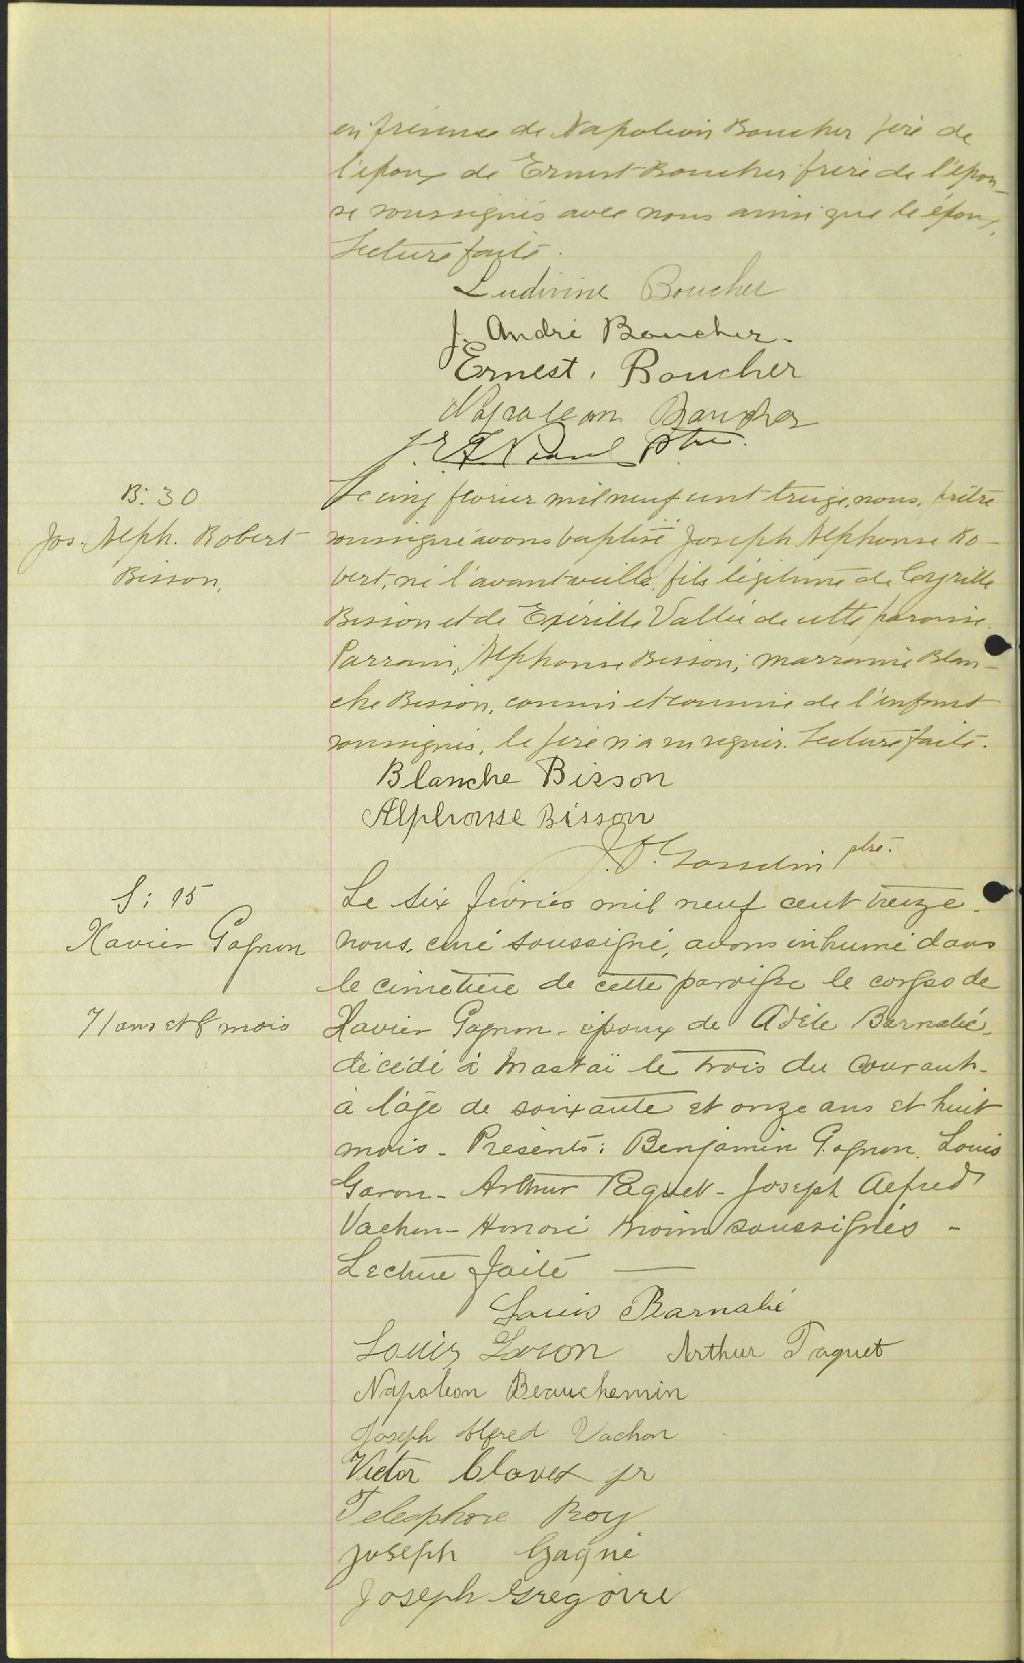 en présence de Napoléon Boucher père de
l'époux de Ernest Boucher frère de l'épou-
se soussignés avec nous ainsi que le époux.
Lecture faite.
Ludivine Boucher
J. André Boucher.
Ernest. Boucher
Napoleon Boucher
Ptre.
B. 30
Jos. Alph. Robert
Bisson,
Le cinq février mil neuf cent treize, nous, prêtre
soussigné avons baptisé Joseph Alphonse Ro-
bert, né l'avant veille, fils légitime de Cyrille
Bisson et de Exérille Vallée de cette paroisse.
Parrain, Alphonse Bisson; marraine Blan-
che Bisson, cousin et cousine de l'enfant
soussignés, le père n'a su signer. Lecture faite.
Blanche Bisson
Alphonse Bisson
Gosselin ptre.
S: 15
Xavier Gagnon
71 ans et 8 mois
Le six février mil neuf cent treize.
nous, curé soussigné, avons inhumé dans
le cimetière de cette paroisse le corps de
Xavier Gagnon - époux de Adèle Barnabé,
décédé à Mastaï le trois du courant.
à l'âge de soixante et onze ans et huit
mois - Présents: Benjamin Gagnon. Louis
Garon - Arthur Paquet - Joseph Alfred
Vachon - Honoré Morin soussignés -
Lecture faite
Louis Barnabé
Louis Garon Arthur Paquet
Napoléon Beauchemin
Joseph Alfred Vachon
Victor Clavet jr
Telesphore Roy
Joseph Gagné
Joseph Gregoire